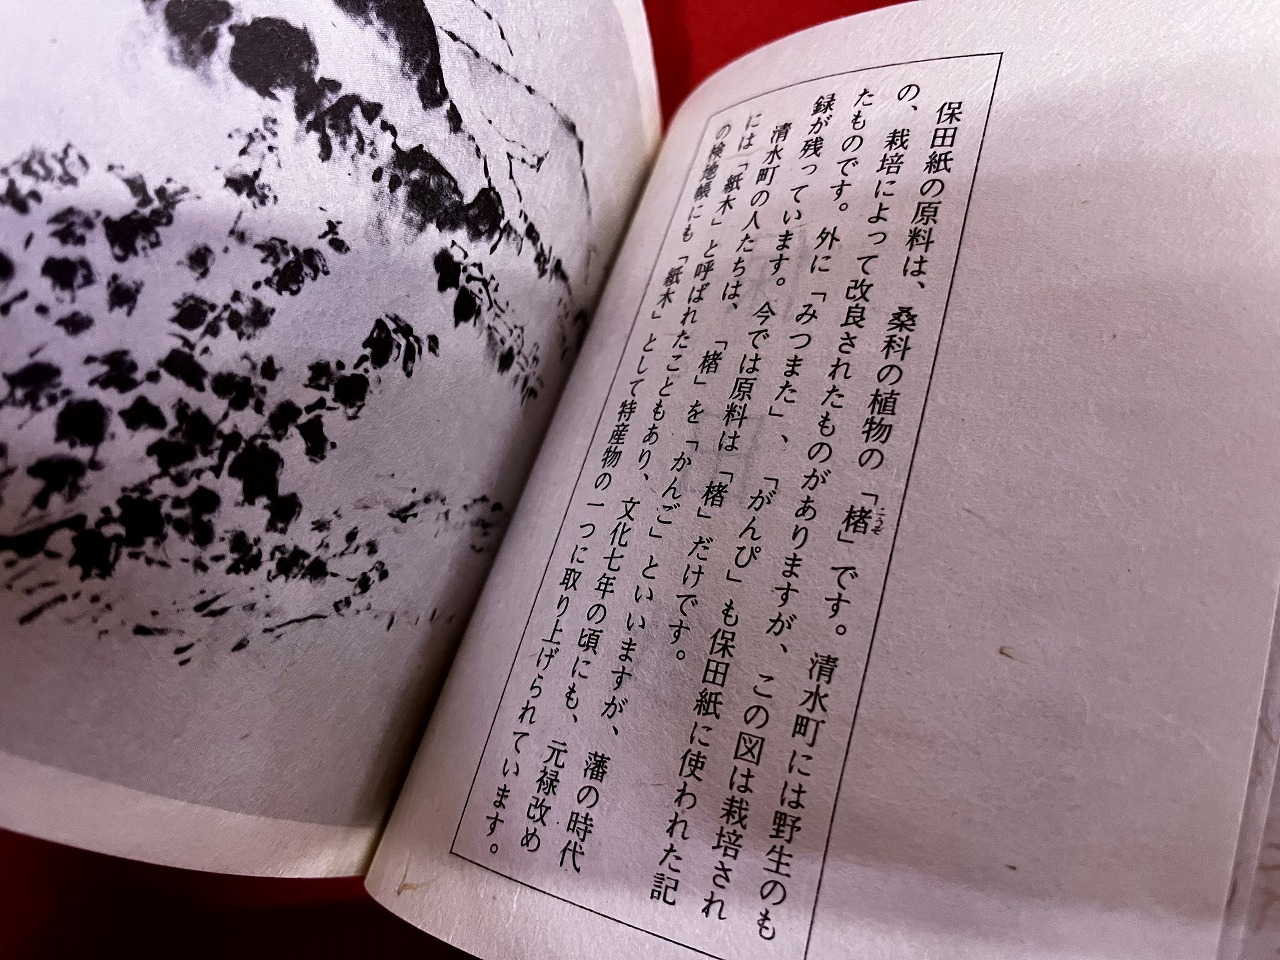 保田紙の原料は、桑科の植物の「楮」です。清水町には野生のも
こうぞ
の、栽培によって改良されたものがありますが、この図は栽培され
たものです。外に「みつまた」、「がんぴ」も保田紙に使われた記
録が残っています。今では原料は「楮」だけです。
清水町の人たちは、「楮」を「かんご」といいますが、藩の時代
には「紙木」と呼ばれたこともあり、文化七年の頃にも、元禄改め
の検地帳にも「紙木」として特産物の一つに取り上げられています。